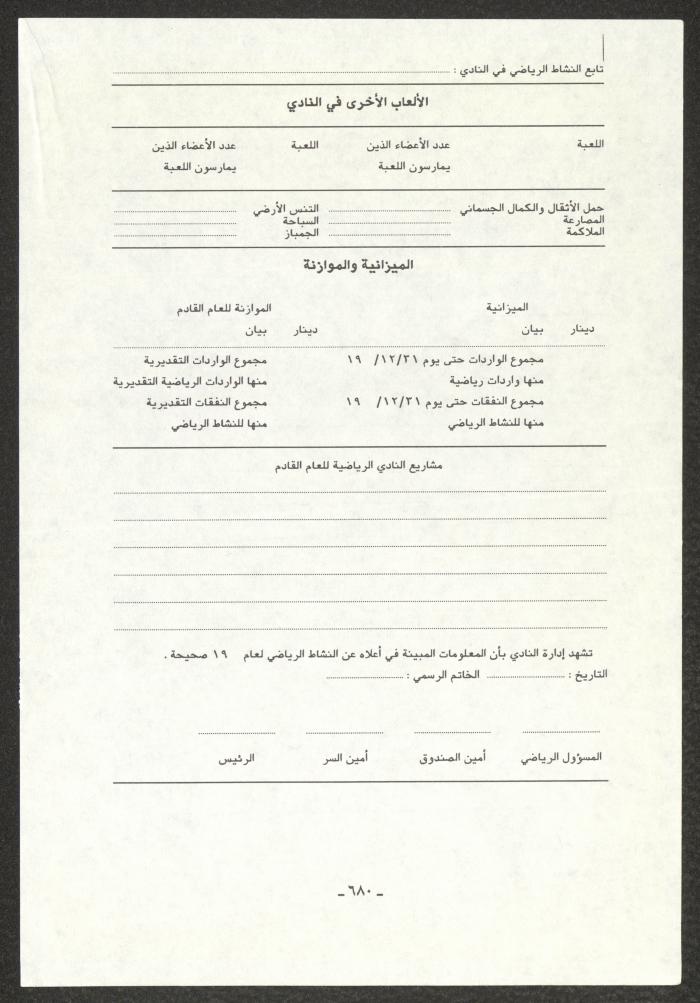 تابع النشاط الرياضي في النادي :
الألعاب الأخرى في النادي
اللعبة عدد الأعضاء الذين اللعبة عدد الأعضاء الذين
يمارسون اللعبة يمارسون اللعبة
حمل الأثقال والكمال الجسماني التنس الأرضي
المصارعة السباحة
الملاكمة الجمباز
الميزانية والموازنة
الميزانية الموازنة للعام القادم
دينار بيان دينار بيان
مجموع الواردات حتى يوم ١٢/٣١/ ١٩ مجموع الواردات التقديرية
منها واردات رياضية منها الواردات الرياضية التقديرية
مجموع النفقات حتى يوم ١٢/٣١/ ١٩ مجموع النفقات التقديرية
منها للنشاط الرياضي منها للنشاط الرياضي
مشاريع النادي الرياضية للعام القادم
تشهد إدارة النادي بأن المعلومات المبينة في أعلاه عن النشاط الرياضي لعام ١٩ صحيحة .
التاريخ : الخاتم الرسمي :
المسؤول الرياضي أمين الصندوق أمين السر الرئيس
ـ ٦٨٠ ـ